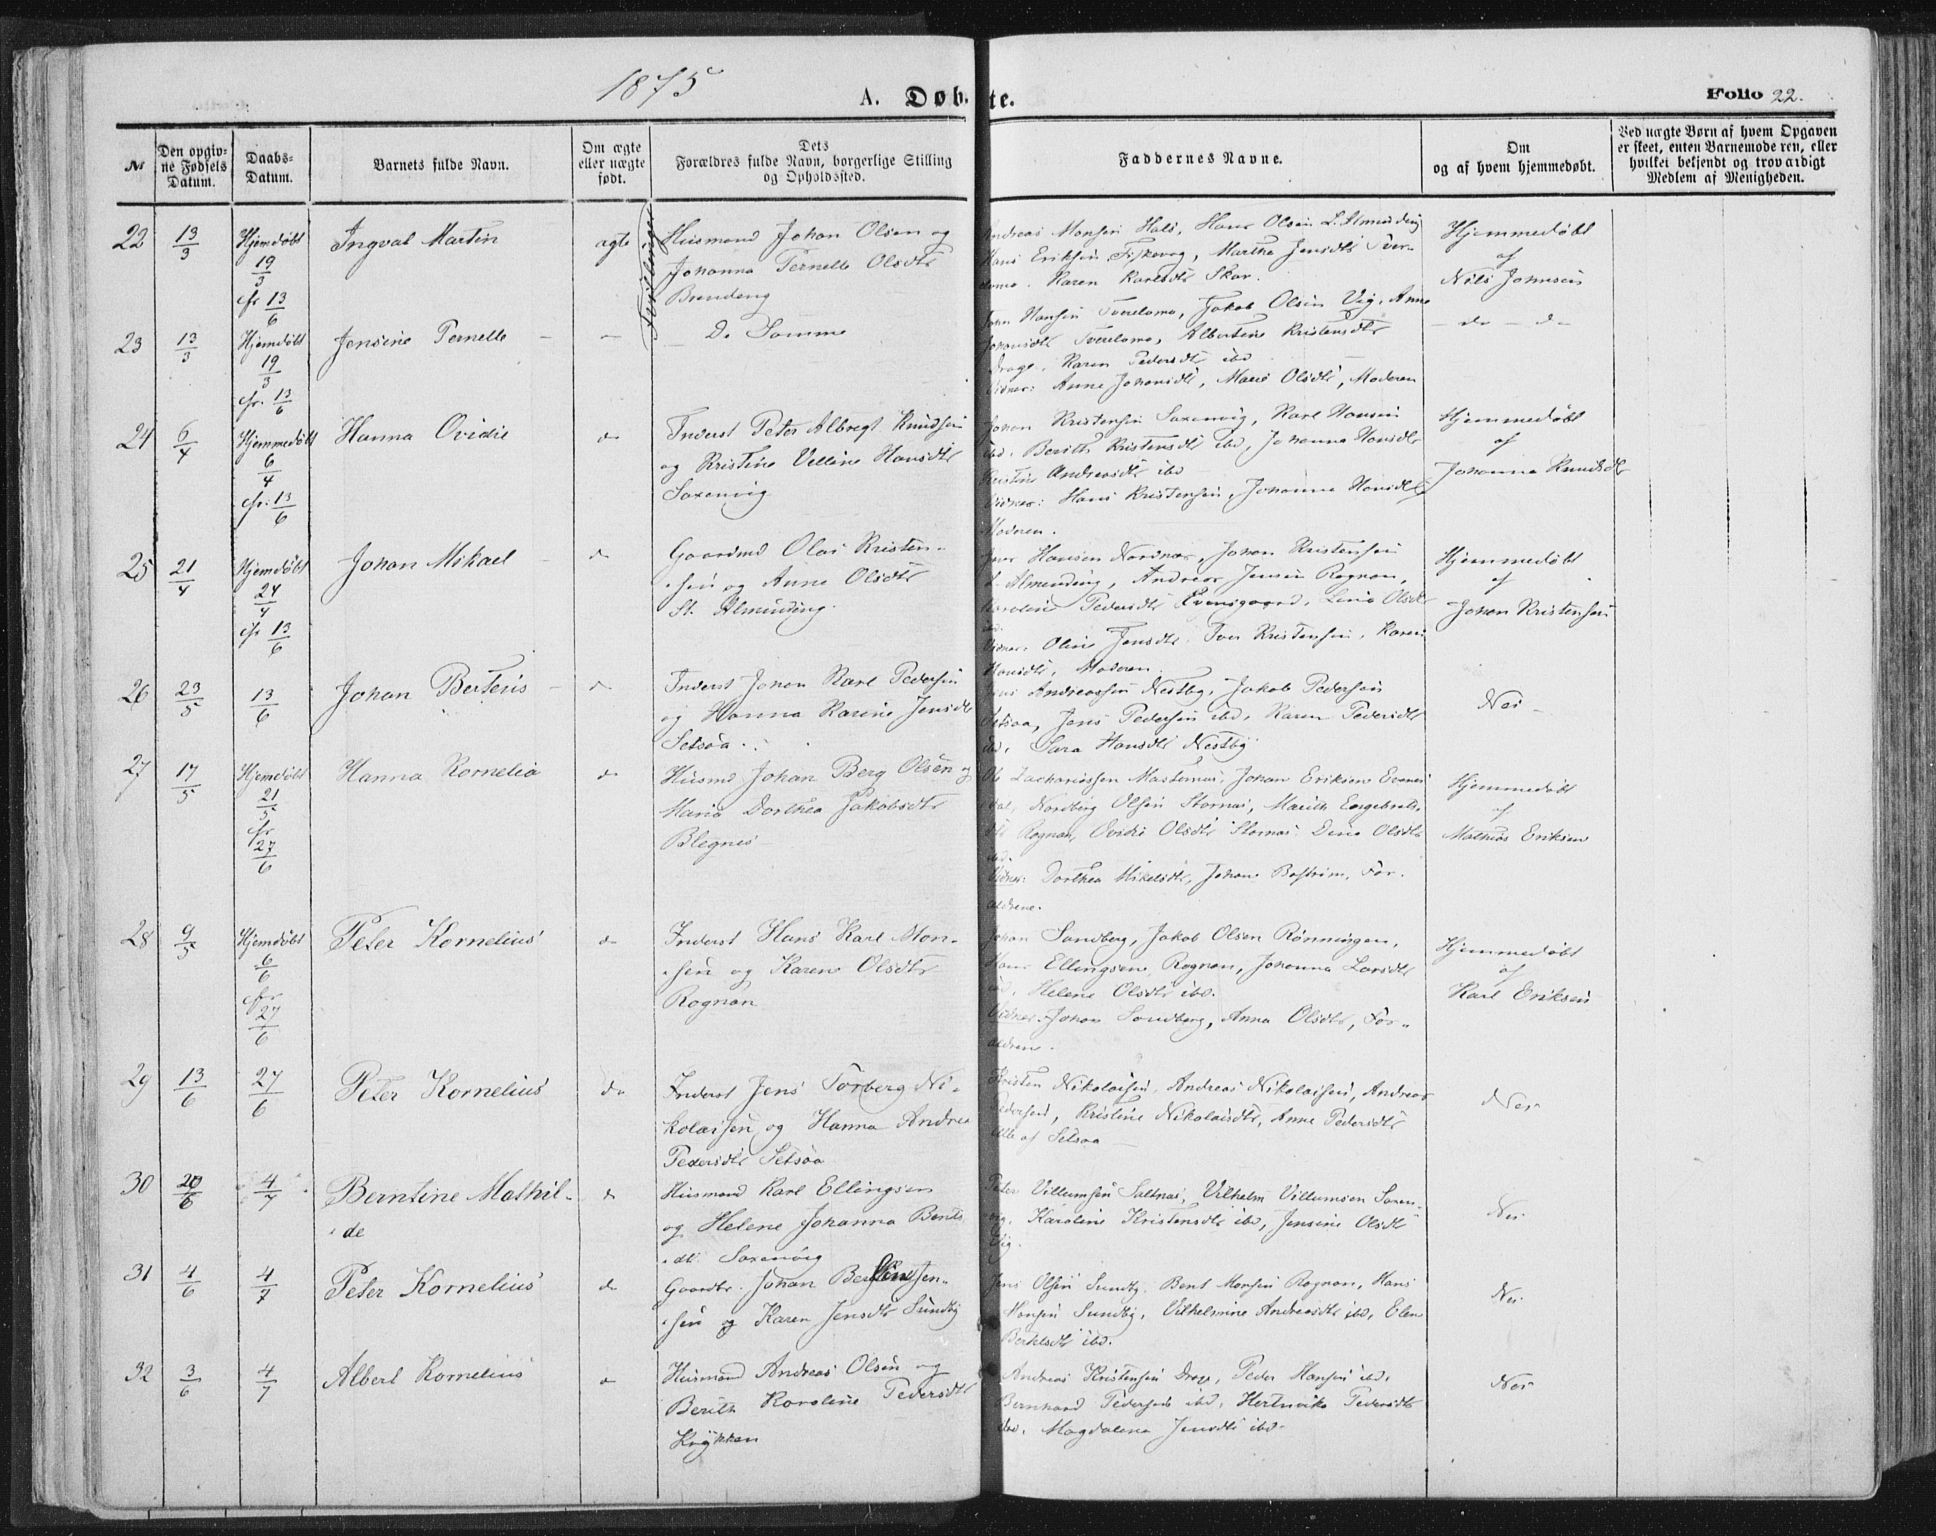 1875
A. Døbte.
Folio 22.
№
Den opgiv-
ne Fødsels
Datum.
Daabs-
Datum.
Barnets fulde Navn.
Om ægte
eller uægte
født.
Dets
Forældres fulde Navn, borgerlige Stilling
og Opholdssted.
Faddernes Navne.
Om
og af hvem hjemmedøbt.
Ved uægte Børn af hvem Opgaven
er skeet, enten Barnemoderen, eller
hvilket bekjendt og troværdigt
Medlem af Menigheden.
22
13/3
Hjemdøbt
19/3
cfr 13/6
Ingval Martin
ægte
Tvillinger
Husmand Johan Olsen og
Johanna Pernelle Olsdtr
Andreas Monsen Hals, Hans Olsen L. Almending
Hans Eriksen Fiskevog, Martha Jensdtr Tver-
Karen Karlsdtr Skar.
Hjemmedøbt
af
Nils Johnsen
23
13/3
Hjemdøbt
19/3
cfr. 13/6
Jensine Pernelle
—
De Samme
John Hansen Tverelomo, Jakob Olsen Vig, Anne
Johansdtr Tverelomo, Albertine Kristensdtr
Drage, Karen Pedersdtr ibd
Vidner: Anne Johansdtr, Marie Olsdtr, Moderen
— do — d—
24
6/4
Hjemmedøbt
6/4
cfr. 13/6
Hanna Ovidie
do
Inderst Peter Albregt Knudsen
og Kristine Velline Hansdtr
Saxenvig
Johan Kristensen Saxenvig, Karl Hansen
ibd. Berith Kristensdtr ibd, Johanna Hansdtr
Kristine Andreasdtr ibd
Vidner: Hans Kristensen, Johanna Hansdtr
Moderen.
Hjemmedøbt
af
Johanna Knudsdtr
25
21/4
Hjemdøbt
24/4
cfr 13/6
Johan Mikael
do
Gaardmd Olai Kristen-
sen og Anne Olsdtr
St. Almending.
Hansen Nordnæs, Johan Kristensen
L. Almending, Andreas Jensen Rognan,
Karoline Pedersdtr Evensgaard, Lina Olsdtr
ibd.
Vidner: Oline Jensdtr. Iver Kristensen, Karen
Hansdtr, Moderen.
Hjemmedøbt
af
Johan Kristensen
26
23/5
13/6
Johan Berteus
do
Inderst Johan Karl Pedersen
og Hanna Karine Jensdtr
Setsøa
Jens Andreassen Nestby, Jakob Pedersen
Setsøa, Jens Pedersen ibd, Karen Pedersdtr
ibd, Sara Hansdtr Nestby
Nei
27
17/5
Hjemdøbt
21/5
cfr
27/6
Hanna Kornelia
do
Husmd Johan Berg Olsen og
Maria Dorthea Jakobsdtr
Blegnes
Ole Zachariassen Masternes, Johan Eriksen Evenes
dal, Nordberg Olsen Stornæs, Marith Engebrets-
dtr Rognan, Ovidie Olsdtr Stornæs, Dina Olsdtr
ibd.
Vidner: Dorthea Mikelsdtr, Johan Boström, For-
ældrene.
Hjemmedøbt
af
Mathias Eriksen
28
9/5
Hjemdøbt
6/6
cfr
27/6
Peter Kornelius
do
Inderst Hans Karl Mon-
sen og Karen Olsdtr
Rognan
Johan Sandberg, Jakob Olsen Rønningen,
Hans Ellingsen Rognan, Johanna Larsdtr
ibd, Helene Olsdtr ibd.
Vidner: Johan Sandberg, Anna Olsdtr, For-
ældrene.
Hjemmedøbt
af
Karl Eriksen
29
13/6
27/6
Peter Kornelius
do
Inderst Jens Torberg Ni-
kolaisen og Hanna Andrea
Pedersdtr Setsøa
Kristen Nikolaisen, Andreas Nikolaisen, Andreas
Pedersen, Kristine Nikolaisdtr, Anne Pedersdtr
alle af Setsøa
Nei
30
20/6
4/7
Berntine Mathil-
de
do
Husmand Karl Ellingsen
og Helene Johanna Bents-
dtr Saxenvig
Peter Villumsen Saltnæs, Vilhelm Villumsen Saxen-
vig, Karoline Kristensdtr ibd, Jensine Olsdtr
Vig.
Nei
31
4/6
4/7
Peter Kornelius
do
Gaardbr. Johan Jen-
sen og Karen Jensdtr Sundby
Jens Olsen Sundby, Bent Monsen Rognan, Hans
Monsen Sundby, Vilhelmine Andreasdtr ibd, Elen
ibd.
Nei
32
3/6
4/7
Albert Kornelius
do
Husmand Andreas Olsen og
Berith Karoline Pedersdtr
Krykken
Andreas Kristensen Drage, Peder Hansen ibd,
Bernhard Pedersen ibd, Hertvika Pedersdtr
ibd, Magdalena Jensdtr ibd.
Nei